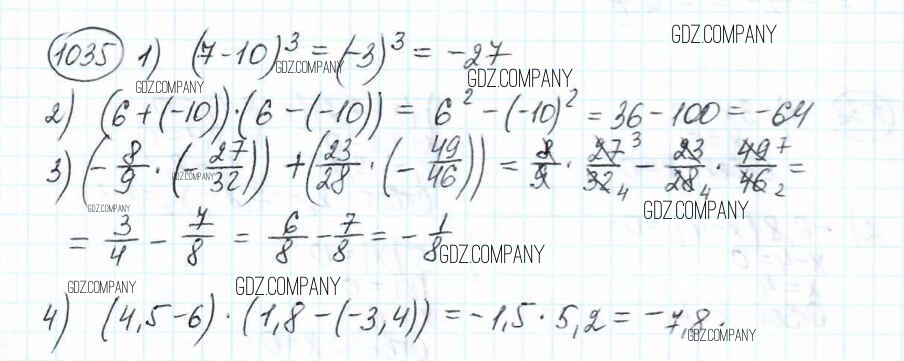 GDZ.COMPANY
1035 1) (7-10)³ = (-3)³ = -27
GDZ.COMPANY GDZ.COMPANY
GDZ.COMPANY
2) (6+(-10))·(6-(-10)) = 6² - (-10)² = 36 - 100 = -64
3) (-8/9 · (-27/32)) + (23/28 · (-49/46)) = 8/9 · 27³/32₄ - 23/28₄ · 49⁷/46₂ =
GDZ.COMPANY
GDZ.COMPANY GDZ.COMPANY
= 3/4 - 7/8 = 6/8 - 7/8 = -1/8
GDZ.COMPANY
GDZ.COMPANY GDZ.COMPANY
4) (4,5-6)·(1,8-(-3,4)) = -1,5·5,2 = -7,8.
GDZ.COMPANY